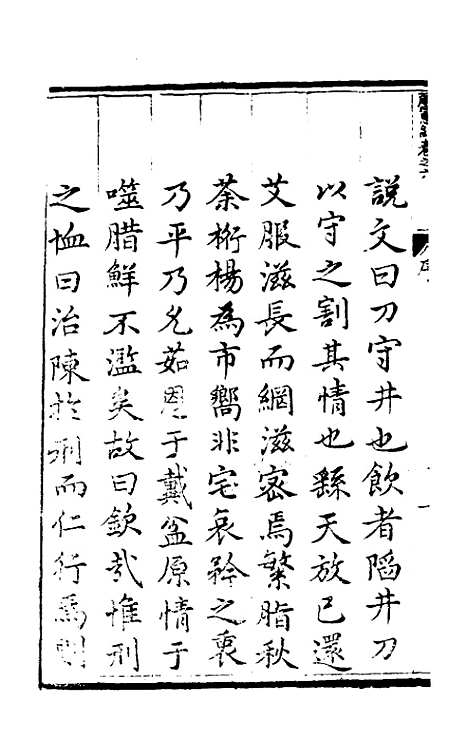 說文曰刀守井也飲者陷井刀
以守之割其情也繇天放已還
艾服滋長而網滋密焉繁脂秋
荼桁楊為市嚮非宅哀矜之衷
乃平乃允茹恩于戴盆原情于
噬腊鮮不濫矣故曰欽哉惟刑
之恤曰治陳於刑而仁行焉則